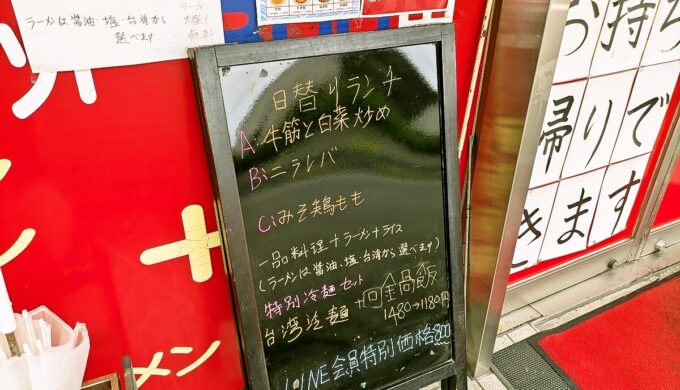 ラーメンは醤油・塩・台湾から
選べます
ラーメン
大盛り
無料
日替りランチ
A:牛筋と白菜炒め
B:ニラレバ
C:みそ鶏もも
一品料理+ラーメン+ライス
(ラーメンは醤油、塩・台湾から選べます)
特別冷麺セット
台湾冷麺+回鍋飯
1480→1180円
LINE会員特別価格800
お持ち
帰りで
きます
メン